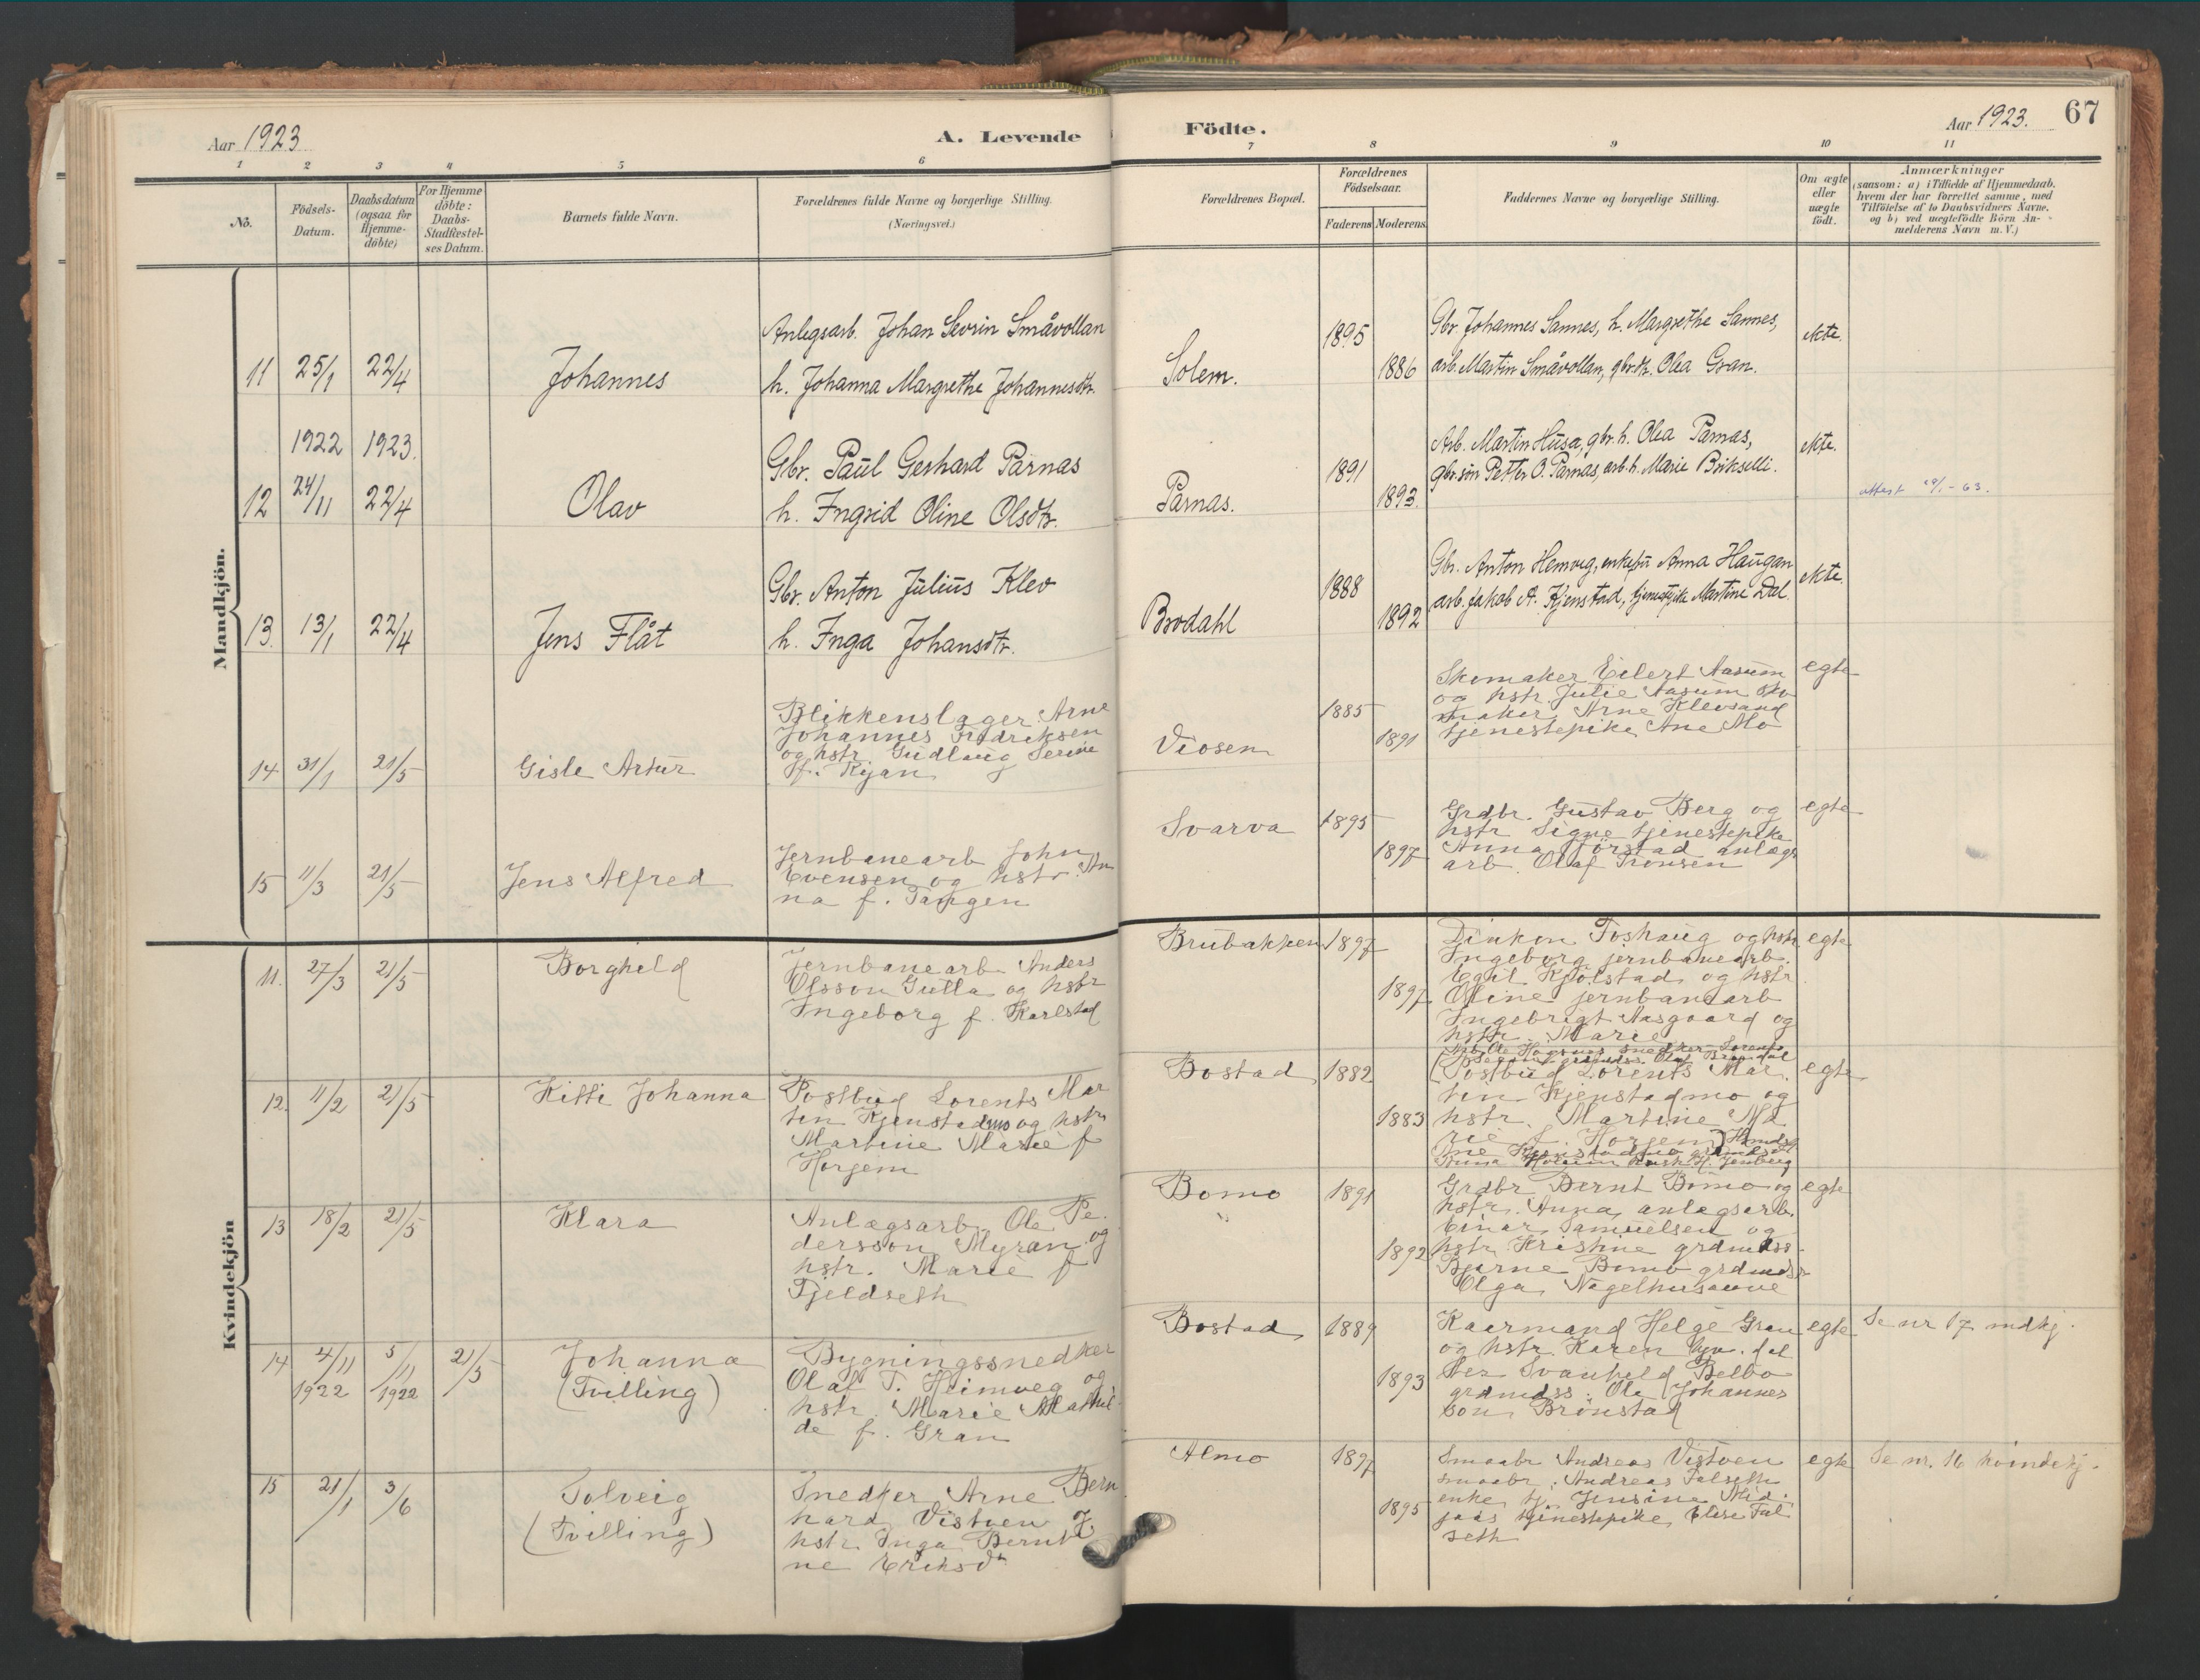 Aar 1923
A. Levende
Födte.
Aar 1923.
67
1 2 3 4 5 6 7 8 9 10 11
No.
Födsels-Datum.
Daabsdatum (ogsaa for Hjemme-döbte)
For Hjemme döbte: Daabs-Stadfæstel-ses Datum.
Barnets fulde Navn.
Forældrenes fulde Navne og borgerlige Stilling.
(Næringsvei.)
Forældrenes Bopæl.
Forældrenes Födselsaar.
Faderens Moderens
Faddernes Navne og borgerlige Stilling.
Om ægte eller uægte födt.
Anmærkninger
(saasom: a) i Tilfælde af Hjemmedaab,
hvem der har forrettet samme, med
Tilföielse af to Daabsvidners Navne.
og b) ved uegtefödte Börn An-
melderens Navn m. V.)
Mandkjön.
11 25/1 22/4 Johannes
Anlegsarb. Johan Sevrin Småvollan
h. Johanna Margrethe Johannesdtr.
Solem.
1895
1886
Gbr. Johannes Sannes, h. Margrethe Sannes,
arb. Martin Småvollan, gbrdtr. Olea Gran.
ekte.
1922 1923.
12 24/11 22/4 Olav
Gbr. Paul Gerhard Parnas
h. Ingrid Oline Olsdtr.
Parnas.
1891
1893.
Arb. Martin Husa, gbr.h. Olea Parnas,
gbr.sön Petter O. Parnas, arb.h. Marie Brikselli.
ekte.
attest - 63.
13. 13/1 22/4 Jens Flåt
Gbr. Anton Julius Klev
h. Inga Johansdtr.
Brodahl
1888
1892
Gbr. Anton Hemveg, enkefru Anna Haugan
arb. Jakob A. Kjenstad, tjenestpike Martine Dal.
ekte.
14 31/1 21/5 Gisle Artur
Blikkenslager Arne
Johannes Fredriksen
og hstr Gudlaug Serine
f. Kjan
Viosen
1885
1891
Skomaker Eilert Aasum
og hstr. Julie Aasum sko
maker Arne Klevsand
tjenestepike Ane Mo
egte
15 11/3 21/5 Jens Alfred
Jernbanearb John
Evensen og hstr. An
na f. Tangen
Svarva
1895
1897
Grdbr. Gustav Berg og
hstr Signe tjenestepike
Anna Fjörstad anlægs
arb. Olaf Tronsen
egte
Kvindekjön
11. 27/3 21/5 Borghild
Jernbanearb Anders
Olsson Gulla og hstr
Ingeborg f. Karlstad
Brubakken
1897
1897
Ingeborg jernbanearb.
Egil Kjölstad og hstr
Oline jernbanearb
Ingebrigt Aasgaard og
hstr. Marie
egte
12. 11/2 21/5 Kitti Johanna
Postbud Lorents Mar
tin Kjenstadmo og hstr
Martine Marie f
Horjem
Bostad
1882
1883
(Postbud Lorents Mar
tin Kjenstadmo og
hstr. Martine Ma
rie f. Horjem)
egte
13 18/2 21/5 Klara
Anlægsarb. Ole Pe
dersson Myran og
hstr. Marie f
Fjeldseth
Bomo
1891
1892
Grdbr Bernt Bomo og
hstr. Anna, anlægsarb.
Einar Samuelsen og
hstr Kristine grdmdss.
Bjarne Bomo grdmdsr
Olga Nagelhusaune
egte
14 4/11 1922 5/11 1922 21/5 Johanna
(Tvilling)
Bygningssnedker
Olaf T. Heimveg og
hstr. Marie Mathil
de f. Gran
Bostad
1889
1893
Kaarmand Helge Gran
og hstr. Karen
Svanhild Belbo
grdmdss. Ole Johannes
son Brönstad
egte
Se nr 17 mdkj.
15 21/1 3/6 Solveig
(Tvilling)
Snedker Arne Bern
hard Vistven og
hstr. Inga Bernt
ne Eriksdtr
Almo
1897
1895
Smaabr Andreas Vistven
smaabr. Andreas Falseth
enke tj. Jensine Mid
jaas tjenestepike Elise Fal
seth
egte
Se nr. 16 kvindekj.